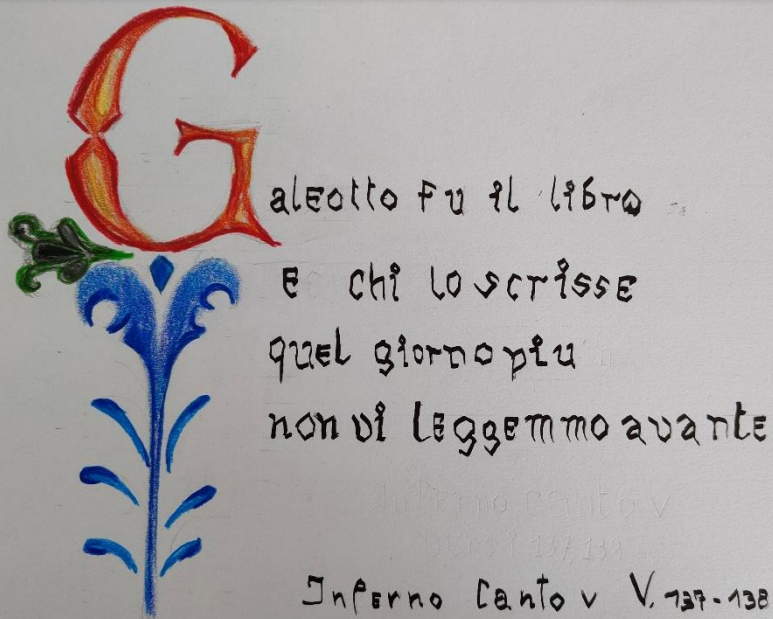 Galeotto fu il libro
E chi lo scrisse
quel giorno piu
non vi leggemmo avante
Inferno Canto v
Inferno Canto v V. 137-138